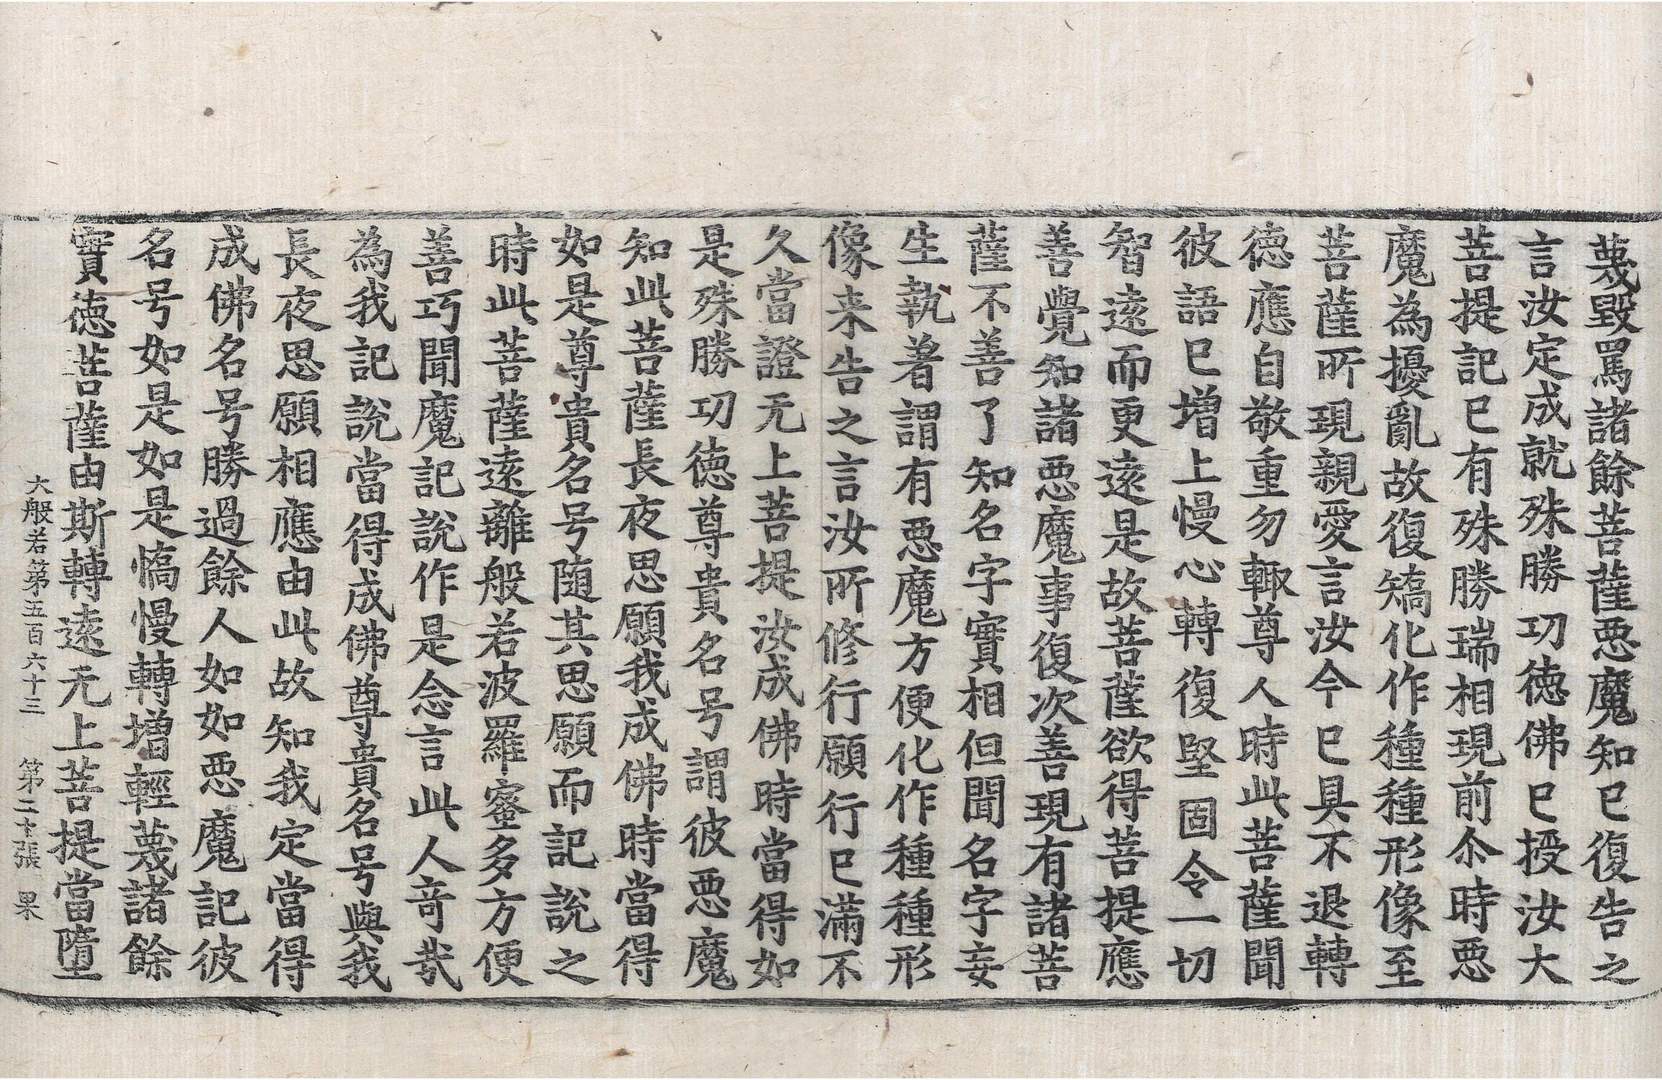 蔑毀罵諸餘菩薩惡魔知已復告之
言汝定成就殊勝功徳佛已授汝大
菩提記已有殊勝瑞相現前尒時惡
魔為擾亂故復矯化作種種形像至
菩薩所現親愛言汝今已具不退轉
徳應自敬重勿輙尊人時此菩薩聞
彼語已增上慢心轉復堅固令一切
智遠而更遠是故菩薩欲得菩提應
善覺知諸惡魔事復次善現有諸菩
薩不善了知名字實相但聞名字妄
生執著謂有惡魔方便化作種種形
像来告之言汝所修行願行已滿不
久當證无上菩提汝成佛時當得如
是殊勝功徳尊貴名号謂彼惡魔
知此菩薩長夜思願我成佛時當得
如是尊貴名号随其思願而記說之
時此菩薩遠離般若波羅蜜多方便
善巧聞魔記說作是念言此人竒㢤
為我記說當得成佛尊貴名号與我
長夜思願相應由此故知我定當得
成佛名号勝過餘人如如惡魔記彼
名号如是如是憍慢轉增輕蔑諸餘
實徳菩薩由斯轉遠无上菩提當墮
大般若第五百六十三　第二十張　果